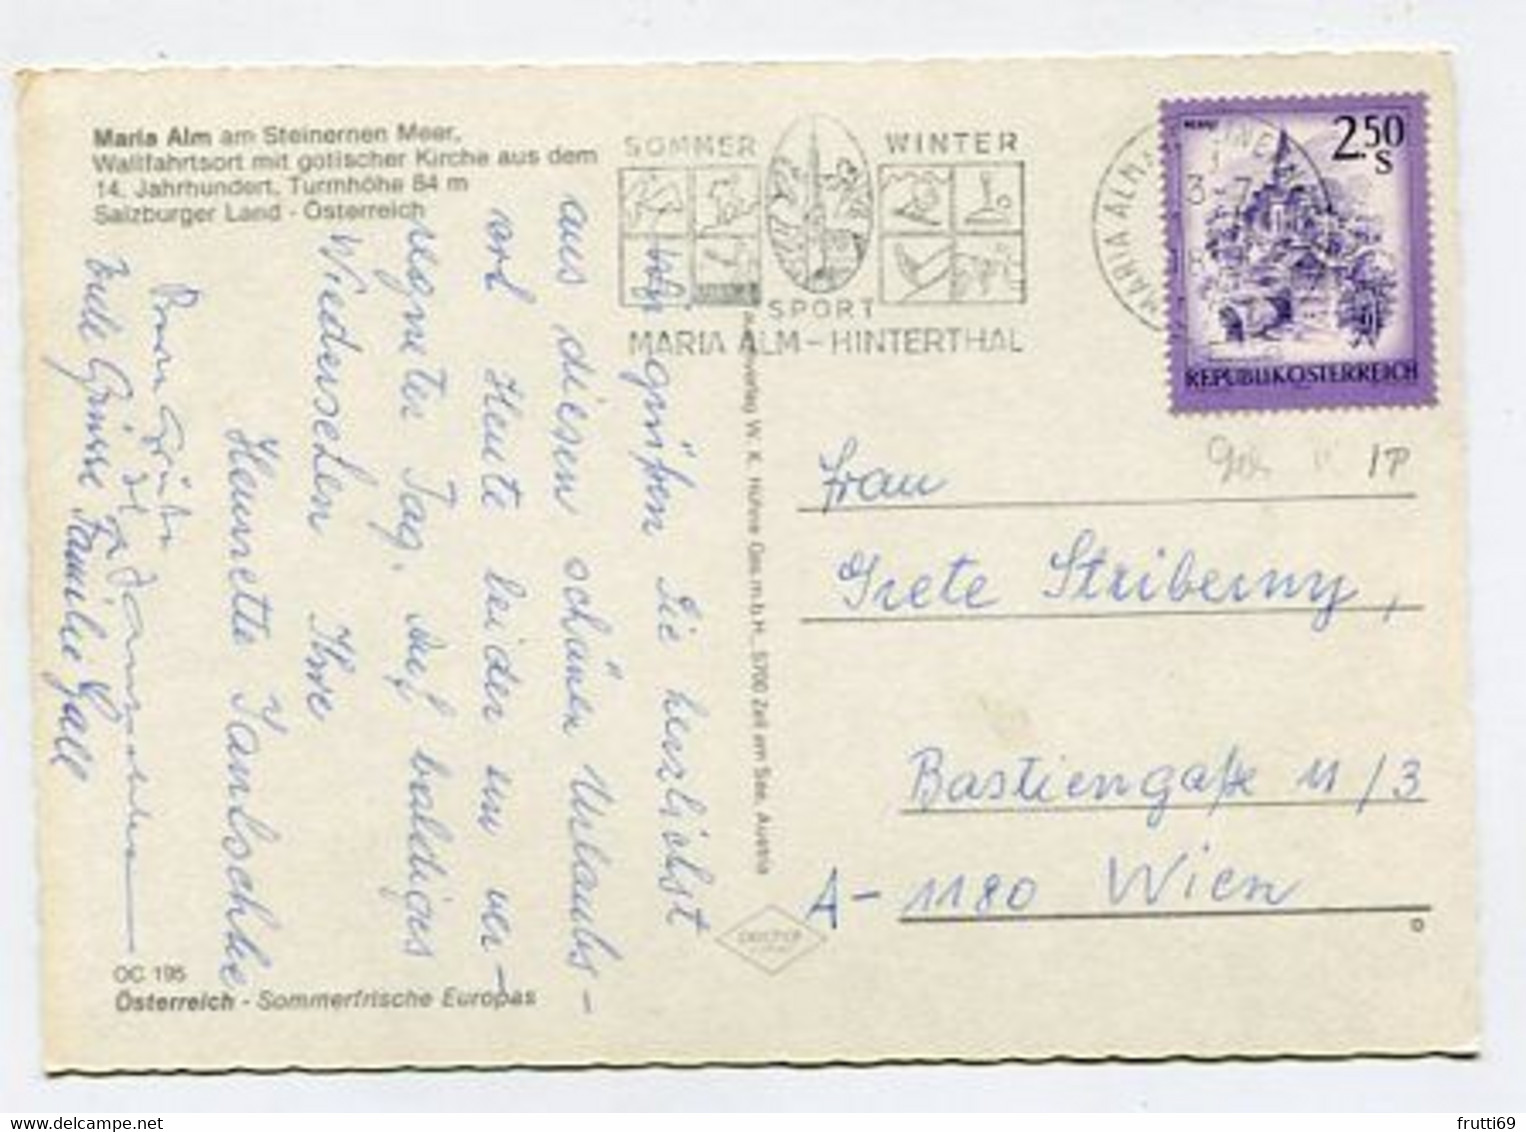 Maria Alm am Steinernen Meer,
Wallfahrtsort mit gotischer Kirche aus dem
14. Jahrhundert, Turmhöhe 84 m
Salzburger Land - Österreich
SOMMER WINTER
SPORT
MARIA ALM - HINTERTHAL
MARIA ALM
2.50
S
REPUBLIK ÖSTERREICH
Wir grüßen Sie herzlichst
aus diesem schönen Urlaubs-
ort Heute leider ein ver-
regneter Tag. Auf baldiges
Wiedersehen Ihre
Henriette
Viele Grüsse Familie Gall
verlag W. K. Höhne Ges.m.b.H., 5700 Zell am See, Austria
Frau
Grete Striberny,
Bastiengaße 11/3
A-1180 Wien
OC 195
Österreich - Sommerfrische Europas
frutti69